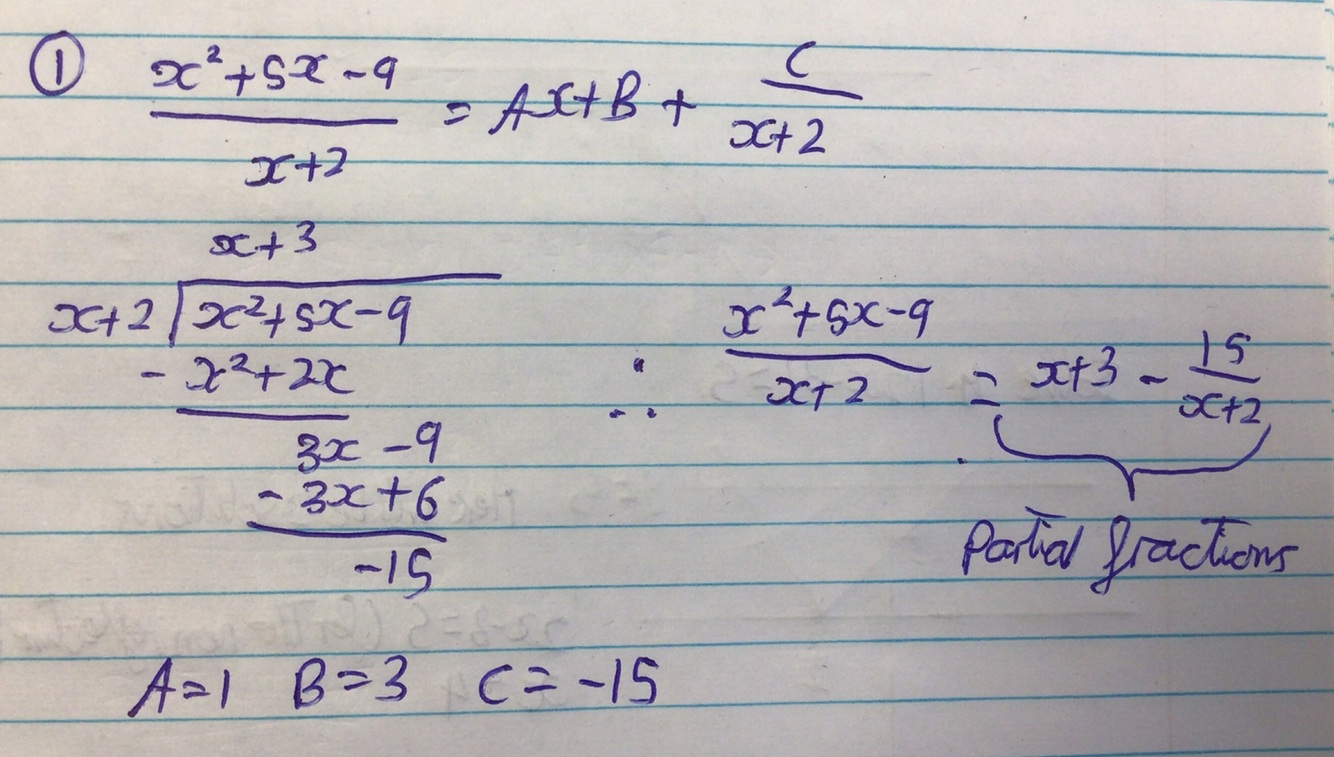 ① x²+5x-9 / x+2 = Ax+B + C / x+2
x+3
x+2 | x²+5x-9
- x²+2x
3x -9
- 3x+6
-15
∴ x²+5x-9 / x+2 = x+3 - 15 / x+2
Partial fractions
A=1 B=3 C=-15